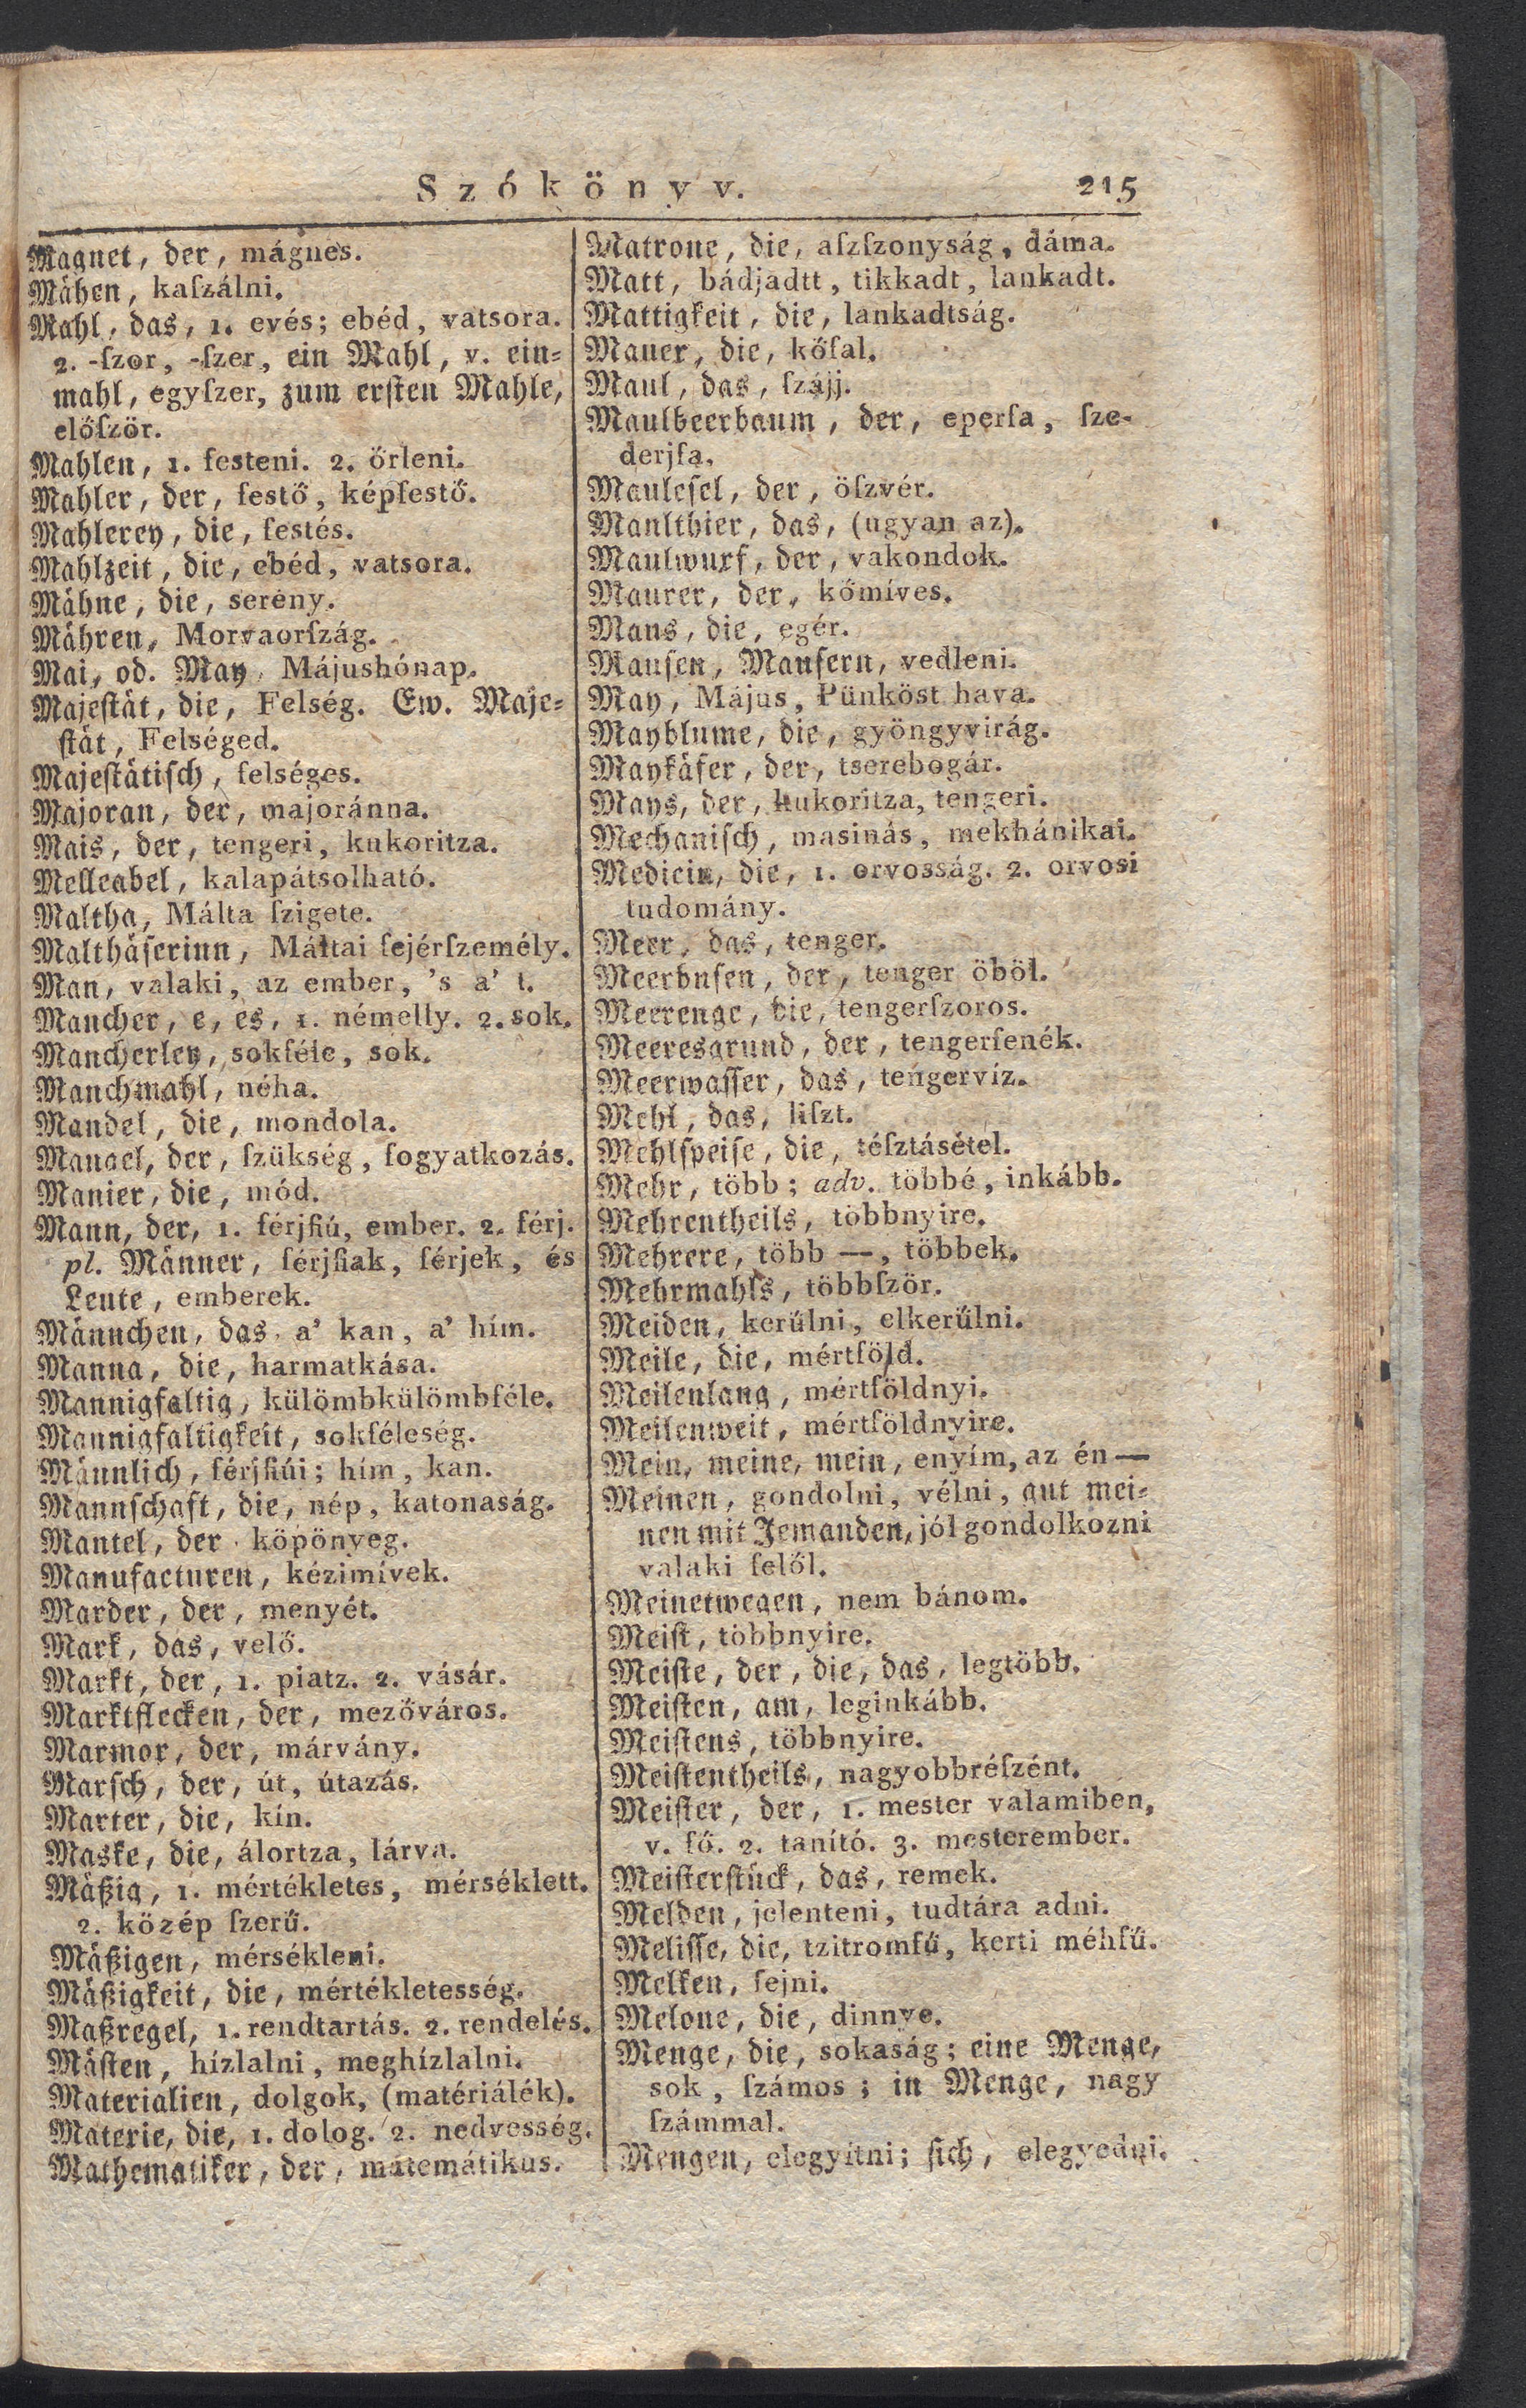 Szókönyv. 215
Magnet, der, mágnes.
Mähen, kaſzálni.
Mahl, das, 1. evés; ebéd, vatsora.
2. -ſzor, -ſzer, ein Mahl, v. ein-
mahl, egyſzer, zum erſten Mahle,
előſzör.
Mahlen, 1. festeni. 2. őrleni.
Mahler, der, festő, képfestő.
Mahlerey, die, festés.
Mahlzeit, die, ebéd, vatsora.
Mähne, die, serény.
Mähren, Morvaorſzág.
Mai, od. May, Májushónap.
Majeſtät, die, Felség. Ew. Maje-
ſtät, Felséged.
Majeſtätiſch, felséges.
Majoran, der, majoránna.
Mais, der, tengeri, kukoritza.
Melleabel, kalapátsolható.
Maltha, Málta ſzigete.
Malthäſerinn, Máltai fejérſzemély.
Man, valaki, az ember, 's a' t.
Mancher, e, es, 1. némelly. 2. sok.
Mancherley, sokféle, sok.
Manchmahl, néha.
Mandel, die, mondola.
Mangel, der, ſzükség, fogyatkozás.
Manier, die, mód.
Mann, der, 1. férjfiú, ember. 2. férj.
pl. Männer, férjfiak, férjek, és
Leute, emberek.
Männchen, das, a' kan, a' hím.
Manna, die, harmatkása.
Mannigfaltig, külömbkülömbféle.
Mannigfaltigkeit, sokféleség.
Männlich, férjfiúi; hím, kan.
Mannſchaft, die, nép, katonaság.
Mantel, der, köpönyeg.
Manufacturen, kézimívek.
Marder, der, menyét.
Mark, das, velő.
Markt, der, 1. piatz. 2. vásár.
Marktflecken, der, mezőváros.
Marmor, der, márvány.
Marſch, der, út, útazás.
Marter, die, kín.
Maske, die, álortza, lárva.
Mäßig, 1. mértékletes, mérséklett.
2. közép ſzerű.
Mäßigen, mérsékleni.
Mäßigkeit, die, mértékletesség.
Maßregel, 1. rendtartás. 2. rendelés.
Mäſten, hízlalni, meghízlalni.
Materialien, dolgok, (matériálék).
Materie, die, 1. dolog. 2. nedvesség.
Mathematiker, der, mátemátikus.
Matrone, die, aſzſzonyság, dáma.
Matt, bádjadtt, tikkadt, lankadt.
Mattigkeit, die, lankadtság.
Mauer, die, kőfal.
Maul, das, ſzájj.
Maulbeerbaum, der, eperfa, ſze-
derjfa.
Mauleſel, der, öſzvér.
Maulthier, das, (ugyan az).
Maulwurf, der, vakondok.
Maurer, der, kőmíves.
Maus, die, egér.
Mauſen, Mauſern, vedleni.
May, Május, Pünköst hava.
Mayblume, die, gyöngyvirág.
Maykäfer, der, tserebogár.
Mays, der, kukoritza, tengeri.
Mechaniſch, masinás, mekhánikai.
Medicin, die, 1. orvosság. 2. orvosi
tudomány.
Meer, das, tenger.
Meerbuſen, der, tenger öböl.
Meerenge, die, tengerſzoros.
Meeresgrund, der, tengerfenék.
Meerwaſſer, das, tengervíz.
Mehl, das, liſzt.
Mehlſpeiſe, die, téſztásétel.
Mehr, több; adv. többé, inkább.
Mehrentheils, többnyire.
Mehrere, több —, többek.
Mehrmahls, többſzör.
Meiden, kerűlni, elkerűlni.
Meile, die, mértföld.
Meilenlang, mértföldnyi.
Meilenweit, mértföldnyire.
Mein, meine, mein, enyím, az én —
Meinen, gondolni, vélni, gut mei-
nen mit Jemanden, jól gondolkozni
valaki felől.
Meinetwegen, nem bánom.
Meiſt, többnyire.
Meiſte, der, die, das, legtöbb.
Meiſten, am, leginkább.
Meiſtens, többnyire.
Meiſtentheils, nagyobbréſzént.
Meiſter, der, 1. mester valamiben,
v. fő. 2. tanító. 3. mesterember.
Meiſterſtück, das, remek.
Melden, jelenteni, tudtára adni.
Meliſſe, die, tzitromfű, kerti méhfű.
Melken, fejni.
Melone, die, dinnye.
Menge, die, sokaság; eine Menge,
sok, ſzámos; in Menge, nagy
ſzámmal.
Mengen, elegyítni; ſich, elegyedni.